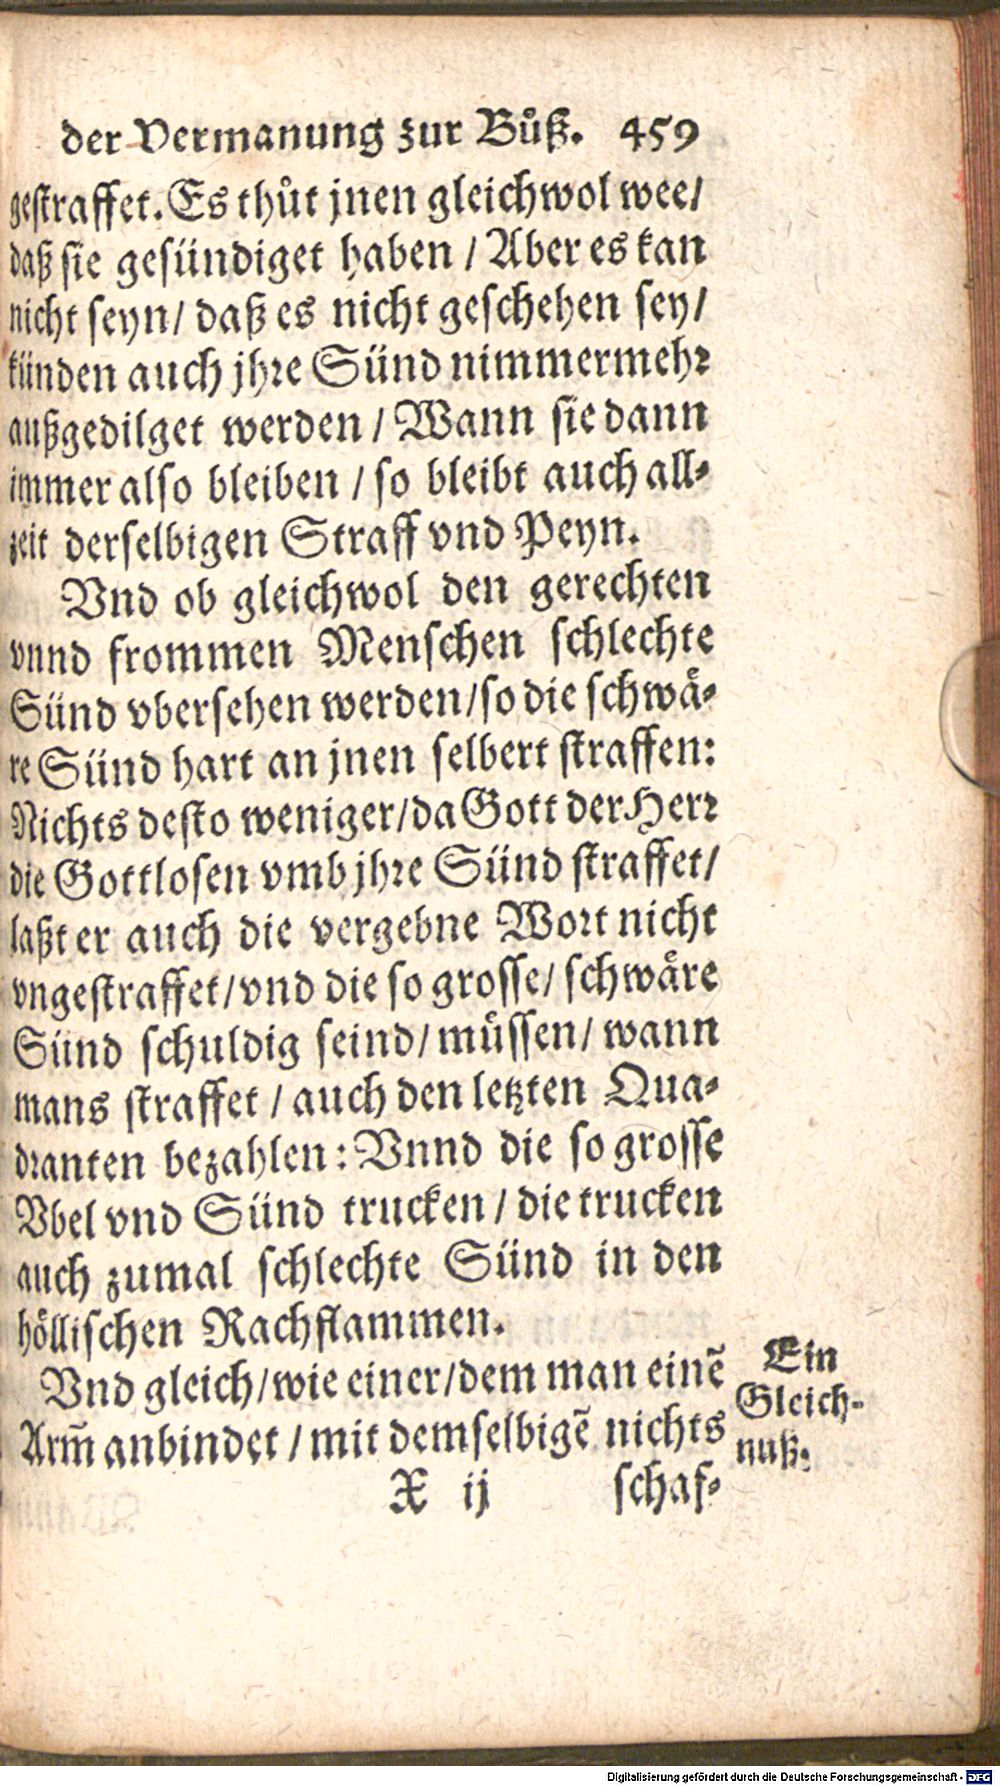 der Vermanung zur Bůß. 459
gestraffet. Es thůt jnen gleichwol wee/
daß sie gesündiget haben / Aber es kan
nicht seyn/ daß es nicht geschehen sey/
künden auch jhre Sünd nimmermehr
außgedilget werden / Wann sie dann
immer also bleiben / so bleibt auch all-
zeit derselbigen Straff vnd Peyn.
Vnd ob gleichwol den gerechten
vnnd frommen Menschen schlechte
Sünd vbersehen werden/so die schwä-
re Sünd hart an jnen selbert straffen:
Nichts desto weniger/da Gott der Herr
die Gottlosen vmb jhre Sünd straffet/
laßt er auch die vergebne Wort nicht
vngestraffet/vnd die so grosse/ schwäre
Sünd schuldig seind/ müssen/ wann
mans straffet / auch den letzten Qua-
dranten bezahlen: Vnnd die so grosse
Vbel vnd Sünd trucken / die trucken
auch zumal schlechte Sünd in den
höllischen Rachflammen.
Vnd gleich/wie einer/dem man einẽ
Arm̃ anbindet / mit demselbigẽ nichts
Ein
Gleich-
nuß.
X ij schaf-
Digitalisierung gefördert durch die Deutsche Forschungsgemeinschaft - DFG